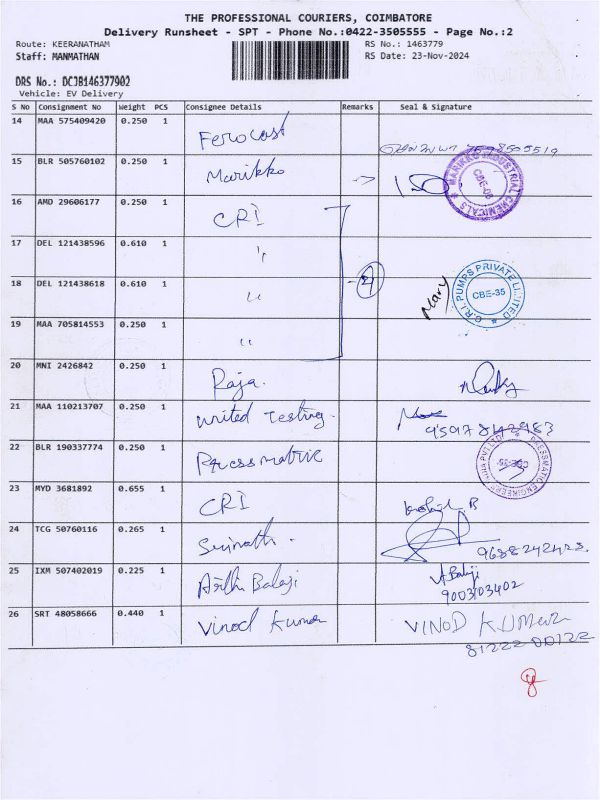 THE PROFESSIONAL COURIERS, COIMBATORE
Delivery Runsheet - SPT - Phone No.:0422-3505555 - Page No.:2
Route: KEERANATHAM
RS No.: 1463779
Staff: MANMATHAN
RS Date: 23-Nov-2024
DRS No.: DCJB146377902
Vehicle: EV Delivery
S No Consignment No Weight PCS Consignee Details Remarks Seal & Signature
14 MAA 575409420 0.250 1 Ferocast
15 BLR 505760102 0.250 1 Marikko
MARIKKO INDUSTRIAL CHEMICALS CBE-06
16 AMD 29606177 0.250 1 CRI
17 DEL 121438596 0.610 1 "
18 DEL 121438618 0.610 1 " Mary
C.R.I. PUMPS PRIVATE LIMITED CBE-35
19 MAA 705814553 0.250 1 "
20 MNI 2426842 0.250 1 Raja.
21 MAA 110213707 0.250 1 United Testing.
22 BLR 190337774 0.250 1 Pressmatic
CBE-35
23 MYD 3681892 0.655 1 CRI
24 TCG 50760116 0.265 1 Srinath. 9688242428.
25 IXM 507402019 0.225 1 Balaji
9003103402
26 SRT 48058666 0.440 1 Vinod Kumar VINOD KUMAR
81222 00122